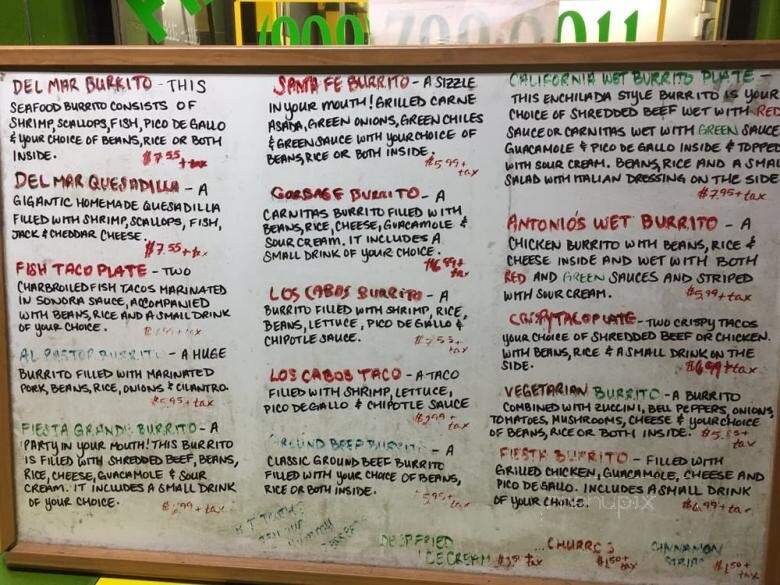 DEL MAR BURRITO - THIS
SEAFOOD BURRITO CONSISTS OF
SHRIMP, SCALLOPS, FISH, PICO DE GALLO
& YOUR CHOICE OF BEANS, RICE OR BOTH
INSIDE. $7.55 + tax
DEL MAR QUESADILLA - A
GIGANTIC HOMEMADE QUESADILLA
FILLED WITH SHRIMP, SCALLOPS, FISH,
JACK & CHEDDAR CHEESE. $7.55 + tx
FISH TACO PLATE - TWO
CHARBROILED FISH TACOS MARINATED
IN SONORA SAUCE, ACCOMPANIED
WITH BEANS, RICE AND A SMALL DRINK
OF YOUR CHOICE.
AL PASTOR BURRITO - A HUGE
BURRITO FILLED WITH MARINATED
PORK, BEANS, RICE, ONIONS & CILANTRO.
$5.95 + tax
FIESTA GRANDE BURRITO - A
PARTY IN YOUR MOUTH! THIS BURRITO
IS FILLED WITH SHREDDED BEEF, BEANS,
RICE, CHEESE, GUACAMOLE & SOUR
CREAM. IT INCLUDES A SMALL DRINK
OF YOUR CHOICE. $6.99 + tax
SANTA FE BURRITO - A SIZZLE
IN YOUR MOUTH! GRILLED CARNE
ASADA, GREEN ONIONS, GREEN CHILES
& GREEN SAUCE WITH YOUR CHOICE OF
BEANS, RICE OR BOTH INSIDE. $5.99 + tax
GARBAGE BURRITO - A
CARNITAS BURRITO FILLED WITH
BEANS, RICE, CHEESE, GUACAMOLE &
SOUR CREAM. IT INCLUDES A
SMALL DRINK OF YOUR CHOICE.
$6.99 + tax
LOS CABOS BURRITO - A
BURRITO FILLED WITH SHRIMP, RICE,
BEANS, LETTUCE, PICO DE GALLO &
CHIPOTLE SAUCE. $7.55 + tax
LOS CABOS TACO - A TACO
FILLED WITH SHRIMP, LETTUCE,
PICO DE GALLO & CHIPOTLE SAUCE
$2.99 + tax
GROUND BEEF BURRITO - A
CLASSIC GROUND BEEF BURRITO
FILLED WITH YOUR CHOICE OF BEANS,
RICE OR BOTH INSIDE. $5.95 + tax
CALIFORNIA WET BURRITO PLATE -
THIS ENCHILADA STYLE BURRITO IS YOUR
CHOICE OF SHREDDED BEEF WET WITH RED
SAUCE OR CARNITAS WET WITH GREEN SAUCE
GUACAMOLE & PICO DE GALLO INSIDE & TOPPED
WITH SOUR CREAM. BEANS, RICE AND A SMALL
SALAD WITH ITALIAN DRESSING ON THE SIDE
$7.95 + tax
ANTONIO'S WET BURRITO - A
CHICKEN BURRITO WITH BEANS, RICE &
CHEESE INSIDE AND WET WITH BOTH
RED AND GREEN SAUCES AND STRIPED
WITH SOUR CREAM. $5.99 + tax
CRISPY TACO PLATE - TWO CRISPY TACOS
YOUR CHOICE OF SHREDDED BEEF OR CHICKEN.
WITH BEANS, RICE & A SMALL DRINK ON THE
SIDE. $6.99 + tax
VEGETARIAN BURRITO - A BURRITO
COMBINED WITH ZUCCINI, BELL PEPPERS, ONIONS,
TOMATOES, MUSHROOMS, CHEESE & YOUR CHOICE
OF BEANS, RICE OR BOTH INSIDE. $5.85 + tax
FIESTA BURRITO - FILLED WITH
GRILLED CHICKEN, GUACAMOLE, CHEESE AND
PICO DE GALLO. INCLUDES A SMALL DRINK
OF YOUR CHOICE. $6.99 + tax
DEEP FRIED
ICE CREAM
CHURROS
$1.50 + tax
CINNAMON
STRIPS $1.50 + tax
menupix